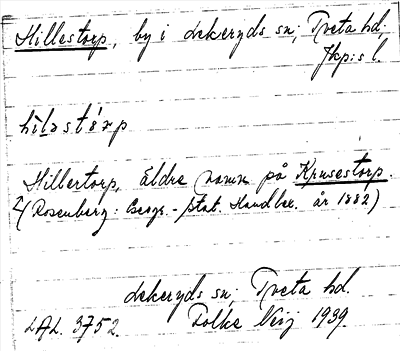 Hillestorp, by i Lekeryds sn, Tveta hd,
Jkp:s l.
hiləstórp
Hillertorp, äldre namn på Krusestorp.
(Rosenberg: Geogr.-stat. Handlex. år 1882)
Lekeryds sn, Tveta hd.
LAL. 3752. Folke Wirj 1939.